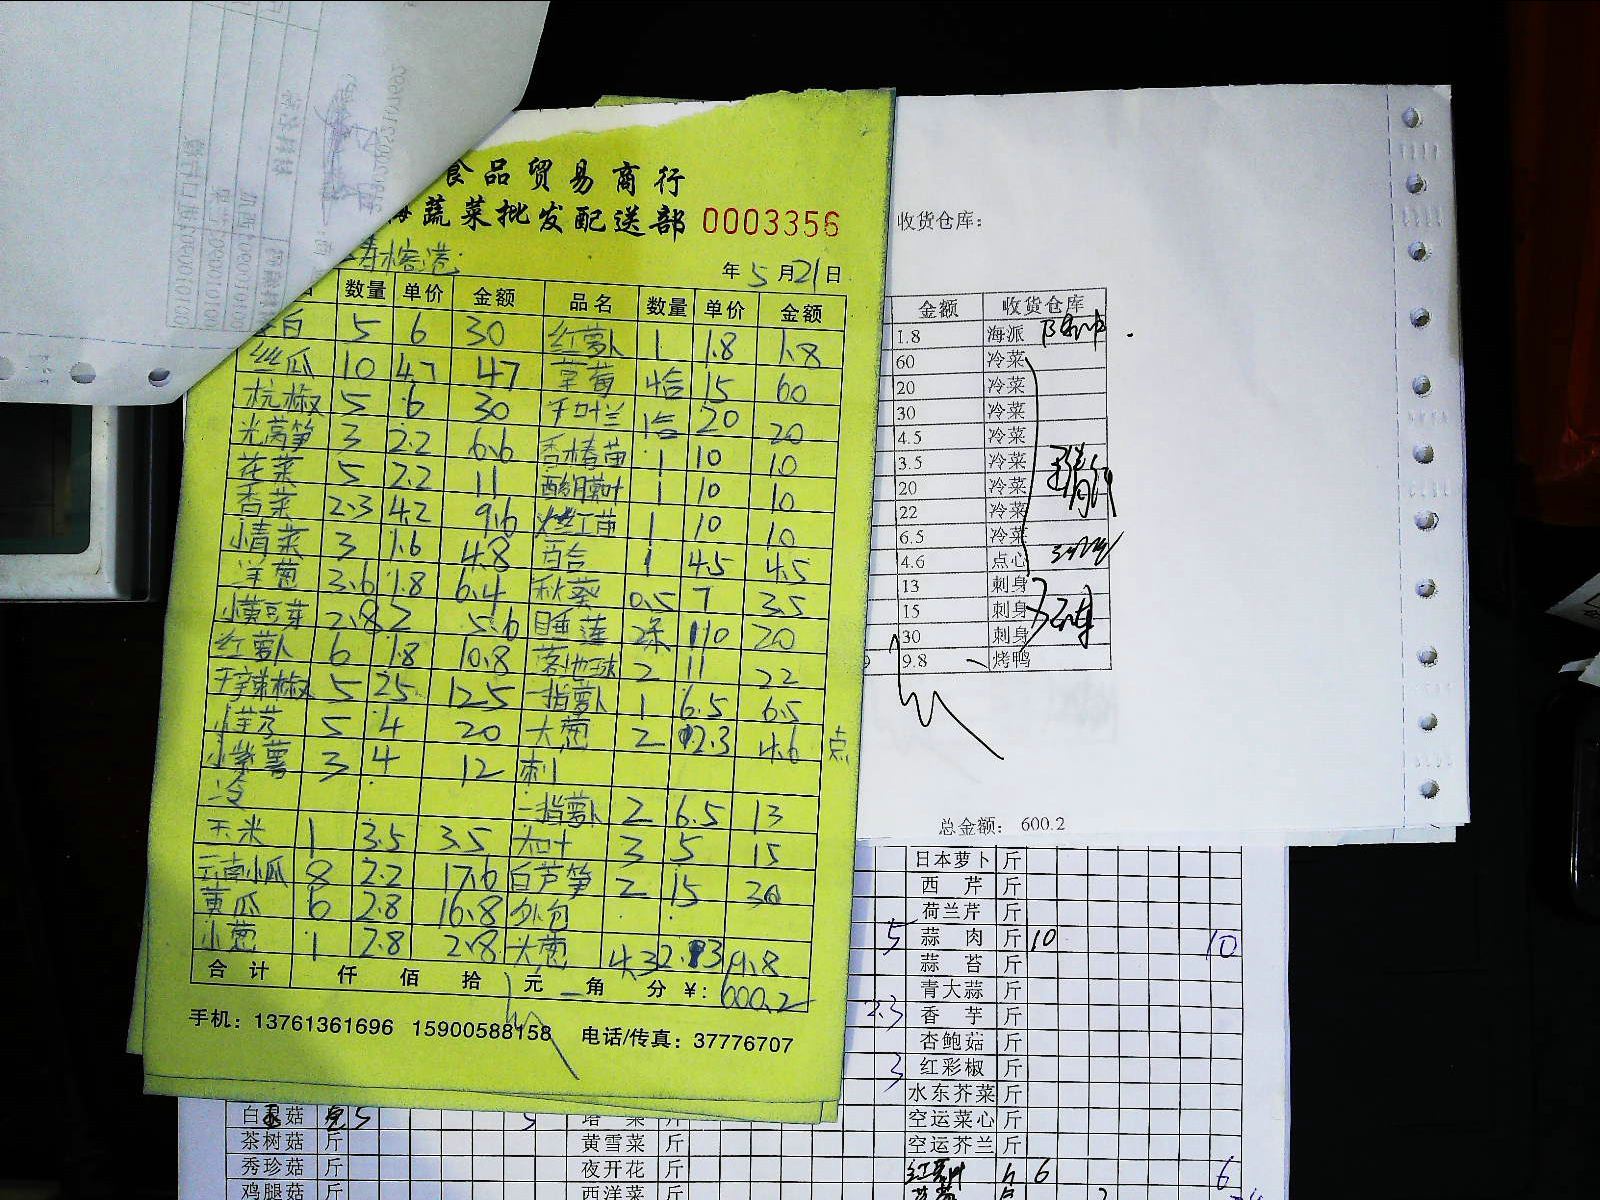 食品贸易商行
海蔬菜批发配送部 0003356
年 5 月 21 日
数量 单价 金额 品名 数量 单价 金额
白 5 6 30 红萝卜 1 1.8 1.8
丝瓜 10 4.7 47 草莓 4合 15 60
杭椒 5 6 30 千叶兰 1合 20 20
光莴笋 3 2.2 6.6 香椿苗 1 10 10
花菜 5 2.2 11 1 10 10
香菜 2.3 4.2 9.6 红苗 1 10 10
小青菜 3 1.6 4.8 百合 1 4.5 4.5
洋葱 3.6 1.8 6.4 秋葵 0.5 7 3.5
小黄豆芽 2.8 2 5.6 睡莲 2 10 20
红萝卜 6 1.8 10.8 落地球 2 11 22
干辣椒 5 25 125 一指萝卜 1 6.5 6.5
小芋艿 5 4 20 大葱 2 2.3 4.6 点
小紫薯 3 4 12 刺
冷 一指萝卜 2 6.5 13
玉米 1 3.5 3.5 大叶 3 5 15
云南小瓜 8 2.2 17.6 白芦笋 2 15 30
黄瓜 6 2.8 16.8 外包
小葱 1 2.8 2.8 大葱 4.3 2.3 9.8
合计 仟 佰 拾 元 角 分 ¥: 600.2
手机：13761361696 15900588158 电话/传真：37776707
收货仓库：
金额 收货仓库
1.8 海派
60 冷菜
20 冷菜
30 冷菜
4.5 冷菜
3.5 冷菜
20 冷菜
22 冷菜
6.5 冷菜
4.6 点心
13 刺身
15 刺身
30 刺身
9.8 烤鸭
总金额： 600.2
日本萝卜 斤
西芹 斤
荷兰芹 斤
5 蒜肉 斤 10 10
蒜苔 斤
青大蒜 斤
2.3 香芋 斤
杏鲍菇 斤
3 红彩椒 斤
水东芥菜 斤
白灵菇 5 5 塔菜 斤 空运菜心 斤
茶树菇 斤 黄雪菜 斤 空运芥兰 斤
秀珍菇 斤 夜开花 斤 6 6
鸡腿菇 斤 西洋菜 斤